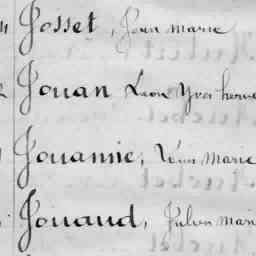 Josset, Jean marie
Jouan Leon Yves herve
Jouannic, marie
Jouaud, Julien mari